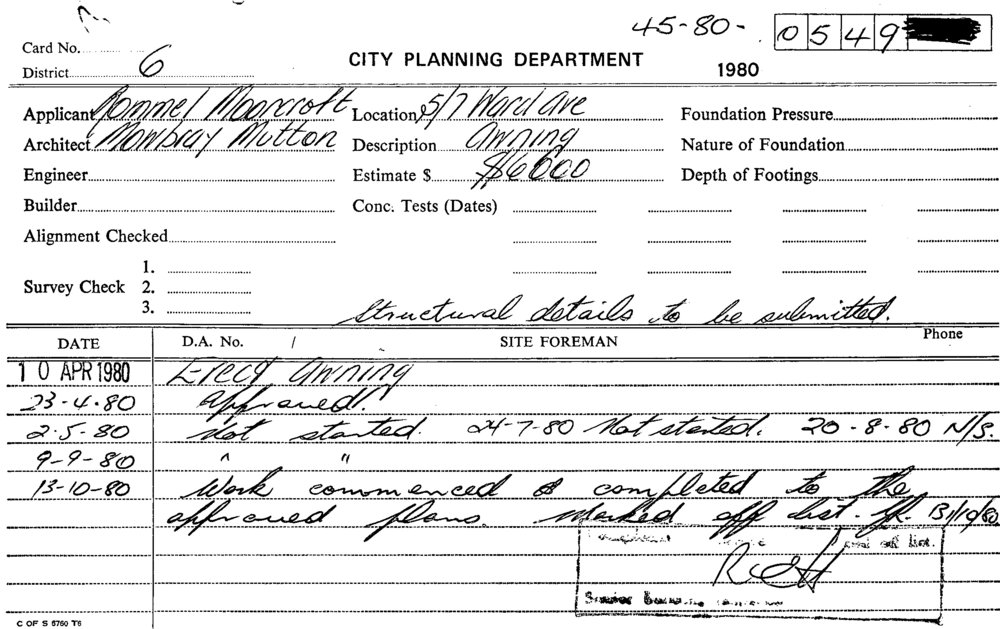 45-80- 0549
Card No.
District 6
CITY PLANNING DEPARTMENT
1980
Applicant Rommel Moorcroft Location 5/7 Ward Ave Foundation Pressure
Architect Mowbray Mutton Description Awning Nature of Foundation
Engineer Estimate $ $6600 Depth of Footings
Builder Conc. Tests (Dates)
Alignment Checked
1.
Survey Check 2.
3.
Structural details to be submitted.
DATE D.A. No. / SITE FOREMAN Phone
10 APR 1980 Erect awning
23-4-80 Approved!
2-5-80 Not started. 24-7-80 Not started. 20-8-80 N/S.
9-9-80 " "
13-10-80 Work commenced & completed to the
approved plans. Marked off list. 13/10/80
off list.
Senior
C OF S 5760 T6